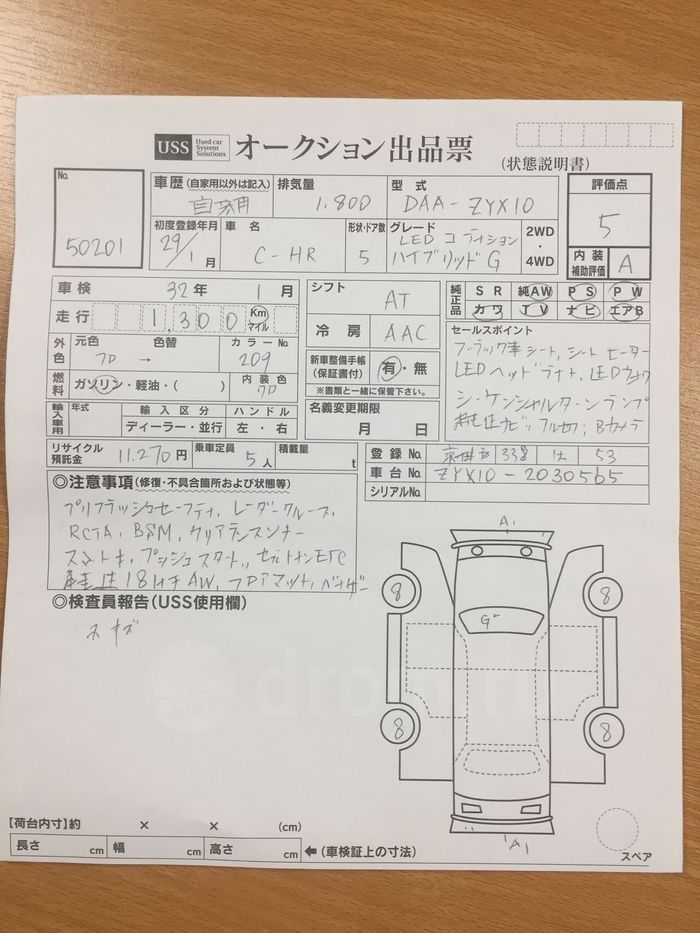 USS Used car System Solutions オークション出品票 (状態説明書)
No. 50201
車歴 (自家用以外は記入) 自家用
排気量 1,800
型式 DAA-ZYX10
評価点 5
初度登録年月 29/1月
車名 C-HR
形状・ドア数 5
グレード LED エディション
ハイブリッド G
2WD・4WD
内装補助評価 A
車検 32年 1月
走行 1,300 Km マイル
シフト AT
冷房 AAC
純正品 SR 純AW PS PW
カワ TV ナビ エアB
外色 元色 色替 カラーNo.
フロ → 209
燃料 ガソリン・軽油・( ) 内装色 フロ
輸入車用 年式 輸入区分 ハンドル
ディーラー・並行 左・右
新車整備手帳 (保証書付) 有・無
※書類と一緒に保管下さい。
名義変更期限
月 日
セールスポイント
ブラック革シート, シートヒーター
LEDヘッドライト, LEDフォグ
シーケンシャルターンランプ
純正ナビ, フルセグ, Bカメラ
リサイクル預託金 11,270円
乗車定員 5人
積載量 t
登録No. 338 53
車台No. ZYX10-2030565
シリアルNo.
◎注意事項 (修復・不具合箇所および状態等)
プリクラッシュセーフティ, レーダークルーズ,
RCTA, BSM, クリアランスソナー
スマトキ, プッシュスタート, ETC
18インチAW, フロアマット, バイザー
◎検査員報告(USS使用欄)
キズ
A1
8 8
G-
8 8
A1
スペア
drom.ru
【荷台内寸】約 × × (cm)
長さ cm 幅 cm 高さ cm ←(車検証上の寸法)